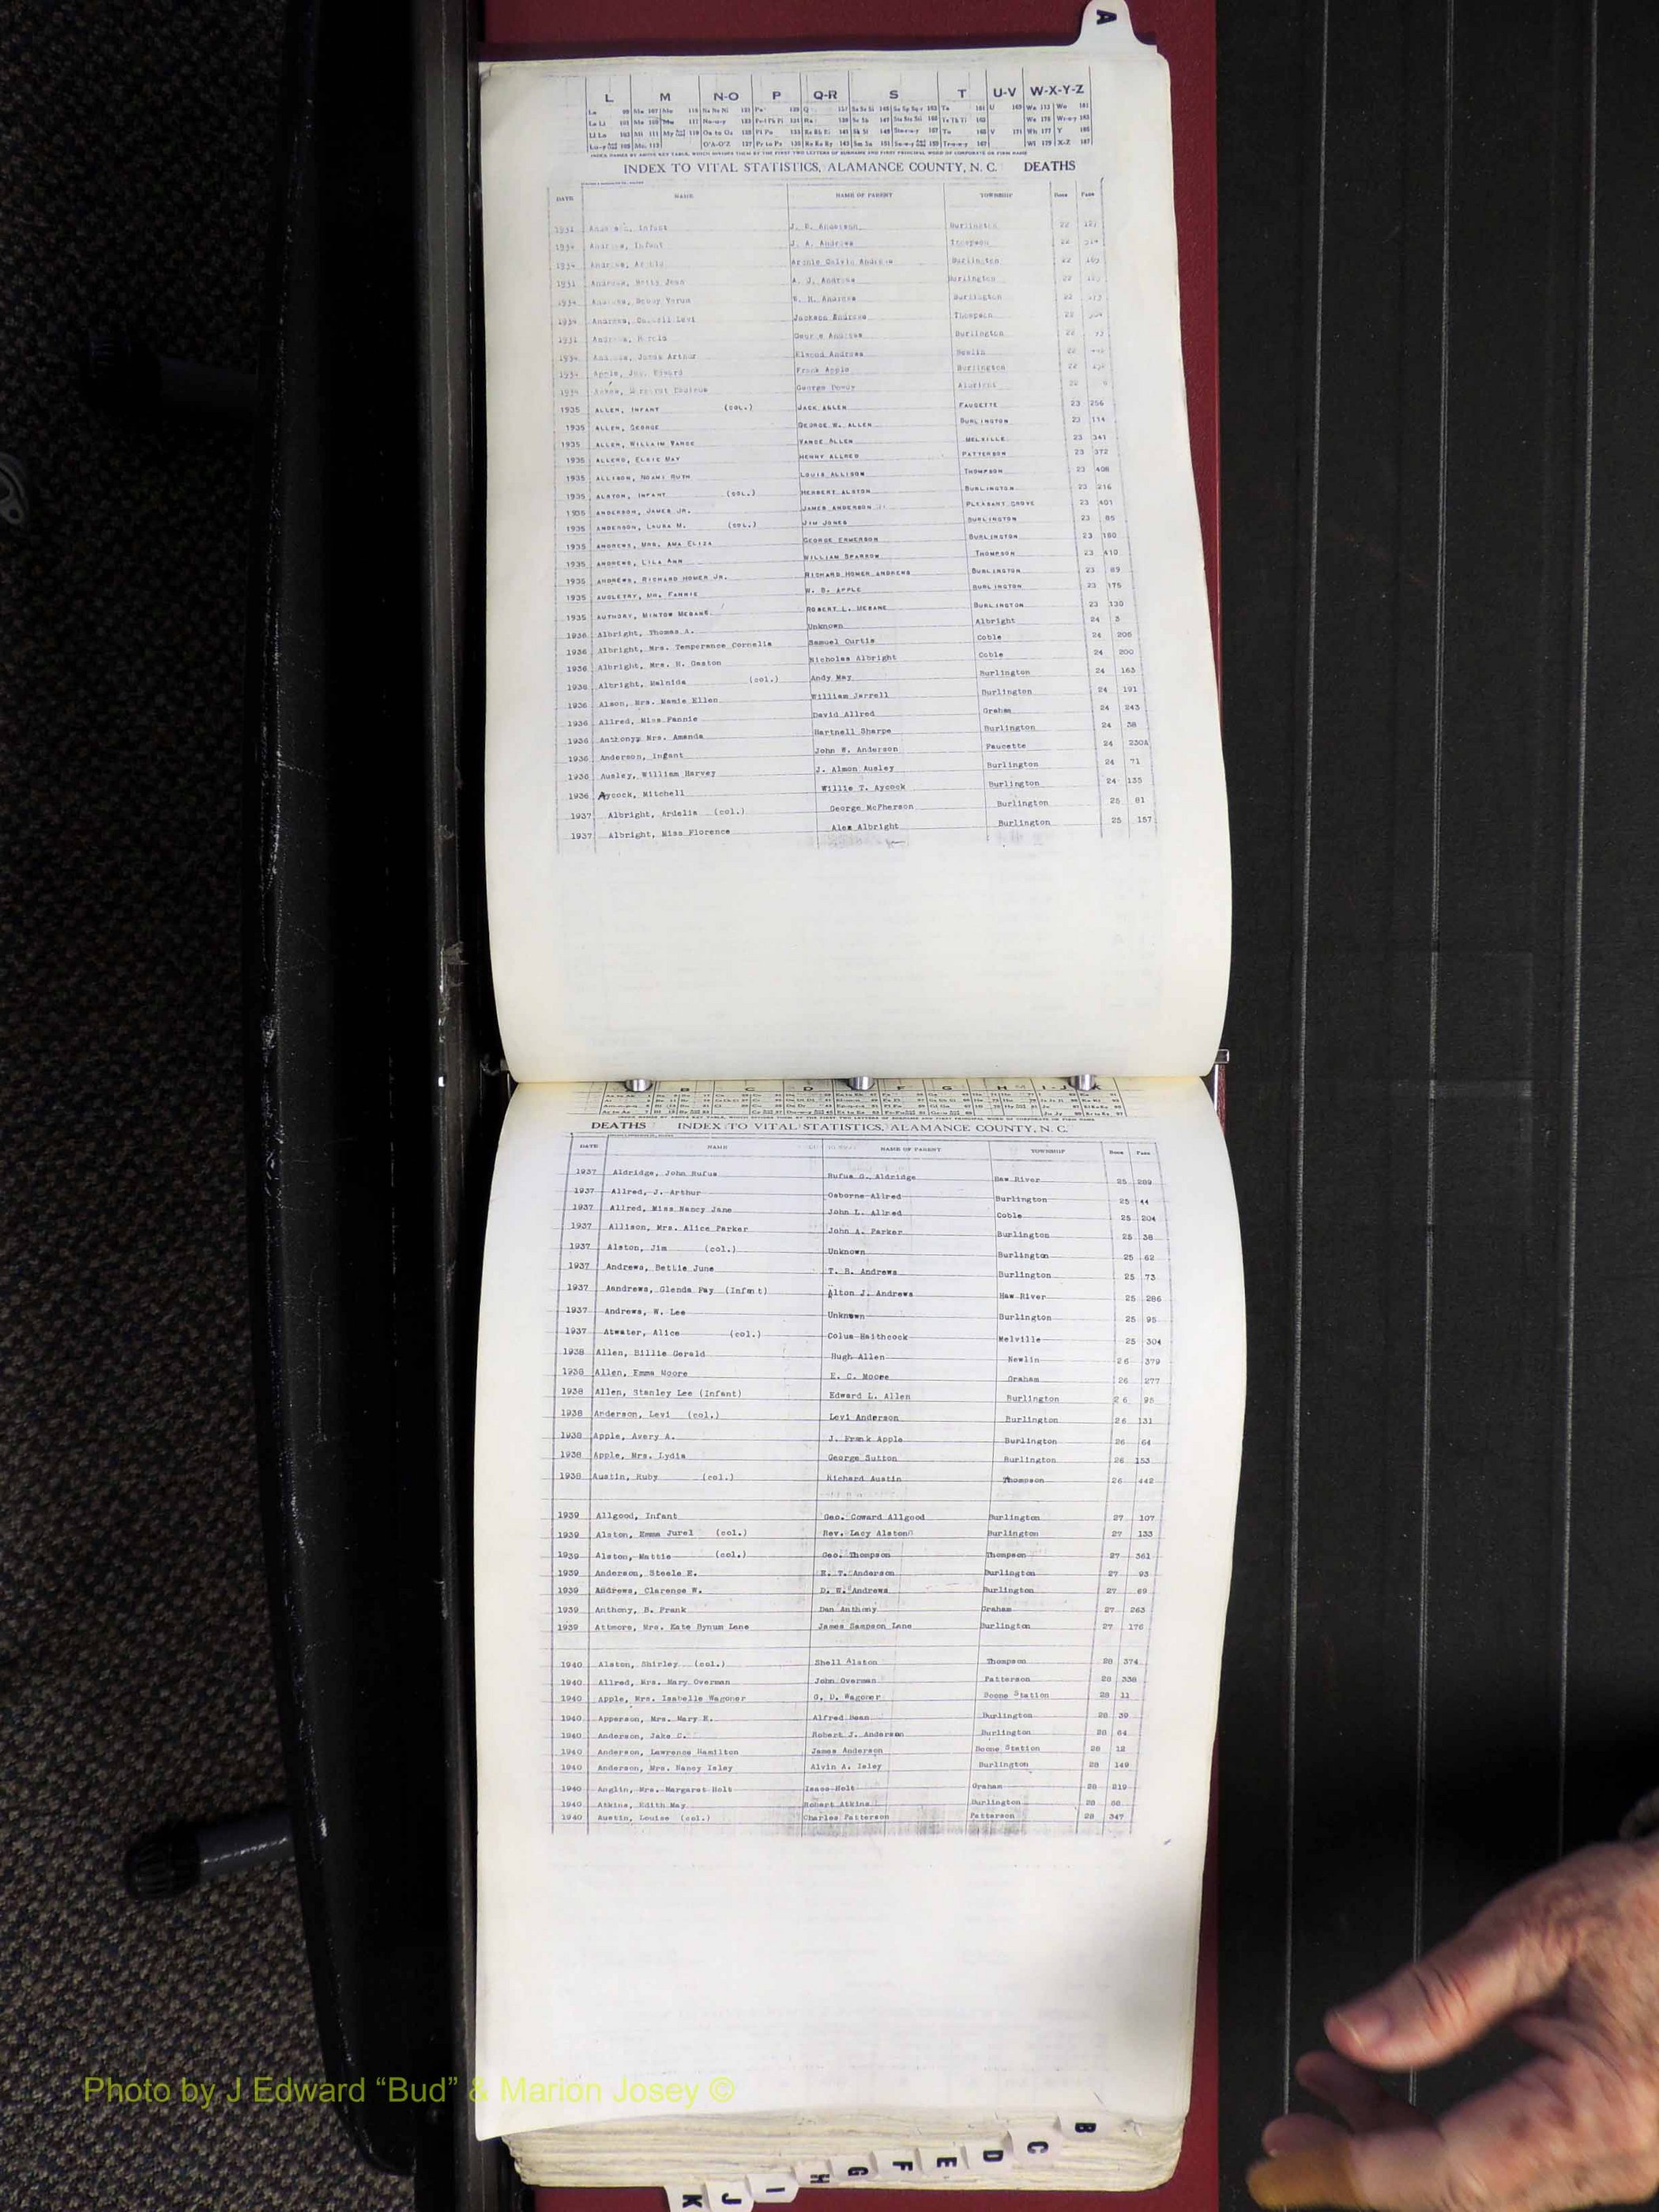 A
L M N-O P Q-R S T U-V W-X-Y-Z
INDEX NAMES BY ABOVE KEY TABLE, WHICH DIVIDES THEM BY THE FIRST TWO LETTERS OF SURNAME AND FIRST PRINCIPAL WORD OF CORPORATE OR FIRM NAME
INDEX TO VITAL STATISTICS, ALAMANCE COUNTY, N. C. DEATHS
DATE NAME NAME OF PARENT TOWNSHIP BOOK PAGE
Infant J. D. Anderson Burlington 22
Infant J. A. Andrews Thompson 22
Archie Calvin Andrews Burlington 22
Andrews, Betty Jean A. J. Andrews Burlington 22
W. H. Andrews Burlington 22
Andrews, Levi Jackson Andrews Thompson 22
George Andrews Burlington 22
Arthur Elwood Andrews Newlin 22
Apple, Edward Frank Apple Burlington 22
George Albright 22
1935 ALLEN, INFANT (COL.) JACK ALLEN FAUCETTE 23 256
1935 ALLEN, GEORGE GEORGE W. ALLEN BURLINGTON 23 114
1935 ALLEN, WILLAIM VANCE VANCE ALLEN MELVILLE 23 341
1935 ALLERD, ELSIE MAY HENRY ALLRED PATTERSON 23 372
1935 ALLISON, NOAMI RUTH LOUIS ALLISON THOMPSON 23 408
1935 ALSTON, INFANT (COL.) HERBERT ALSTON BURLINGTON 23 216
1935 ANDERSON, JAMES JR. JAMES ANDERSON PLEASANT GROVE 23 401
1935 ANDERSON, LAURA M. (COL.) JIM JONES BURLINGTON 23 85
1935 ANDREWS, MRS. AMA ELIZA GEORGE EMMERSON BURLINGTON 23 180
1935 ANDREWS, LILA ANN WILLIAM SPARROW THOMPSON 23 410
1935 ANDREWS, RICHARD HOMER JR. RICHARD HOMER ANDREWS BURLINGTON 23 89
1935 FANNIE W. D. APPLE BURLINGTON 23 175
1935 AUTHORY, MINTON MEBANE ROBERT L. MEBANE BURLINGTON 23 130
1936 Albright, Thomas A. Unknown Albright 24 3
1936 Albright, Mrs. Temperance Cornelia Samuel Curtis Coble 24 206
1936 Albright, Mrs. H. Gaston Nicholas Albright Coble 24 200
1936 Albright, Malnida (col.) Andy May Burlington 24 163
1936 Alson, Mrs. Mamie Ellen William Jarrell Burlington 24 191
1936 Allred, Miss Fannie David Allred Graham 24 243
1936 Anthony, Mrs. Amanda Hartnell Sharpe Burlington 24 38
1936 Anderson, Infant John W. Anderson Faucette 24 230A
1936 Ausley, William Harvey J. Almon Ausley Burlington 24 71
1936 Aycock, Mitchell Willie T. Aycock Burlington 24 135
1937 Albright, Ardelia (col.) George McPherson Burlington 25 81
1937 Albright, Miss Florence Alex Albright Burlington 25 157
B C D F G H I-J K
DEATHS INDEX TO VITAL STATISTICS, ALAMANCE COUNTY, N. C.
DATE NAME NAME OF PARENT TOWNSHIP BOOK PAGE
1937 Aldridge, John Rufus Rufus G. Aldridge Haw River 25 289
1937 Allred, J. Arthur Osborne Allred Burlington 25 44
1937 Allred, Miss Nancy Jane John L. Allred Coble 25 204
1937 Allison, Mrs. Alice Parker John A. Parker Burlington 25 38
1937 Alston, Jim (col.) Unknown Burlington 25 62
1937 Andrews, Bettie June T. B. Andrews Burlington 25 73
1937 Aandrews, Glenda Fay (Infant) Alton J. Andrews Haw River 25 286
1937 Andrews, W. Lee Unknown Burlington 25 95
1937 Atwater, Alice (col.) Colus Haithcock Melville 25 304
1938 Allen, Billie Gerald Hugh Allen Newlin 26 379
1938 Allen, Emma Moore E. C. Moore Graham 26 277
1938 Allen, Stanley Lee (Infant) Edward L. Allen Burlington 26 95
1938 Anderson, Levi (col.) Levi Anderson Burlington 26 131
1938 Apple, Avery A. J. Frank Apple Burlington 26 64
1938 Apple, Mrs. Lydia George Sutton Burlington 26 153
1938 Austin, Ruby (col.) Richard Austin Thompson 26 442
1939 Allgood, Infant Geo. Coward Allgood Burlington 27 107
1939 Alston, Emma Jurel (col.) Rev. Lacy Alston Burlington 27 133
1939 Alston, Mattie (col.) Geo. Thompson Thompson 27 361
1939 Anderson, Steele E. E. T. Anderson Burlington 27 93
1939 Andrews, Clarence W. D. W. Andrews Burlington 27 69
1939 Anthony, B. Frank Dan Anthony Graham 27 263
1939 Attmore, Mrs. Kate Bynum Lane James Sampson Lane Burlington 27 176
1940 Alston, Shirley (col.) Shell Alston Thompson 28 374
1940 Allred, Mrs. Mary Overman John Overman Patterson 28 338
1940 Apple, Mrs. Isabelle Wagoner G. D. Wagoner Boone Station 28 11
1940 Apperson, Mrs. Mary E. Alfred Bean Burlington 28 39
1940 Anderson, Jake C. Robert J. Anderson Burlington 28 64
1940 Anderson, Lawrence Hamilton James Anderson Boone Station 28 12
1940 Anderson, Mrs. Nancy Isley Alvin A. Isley Burlington 28 149
1940 Anglin, Mrs. Margaret Holt Isaac Holt Graham 28 219
1940 Atkins, Edith May Robert Atkins Burlington 28 68
1940 Austin, Louise (col.) Charles Patterson Patterson 28 347
Photo by J Edward “Bud” & Marion Josey ©
B
C
D
E
F
G
H
I
J
K